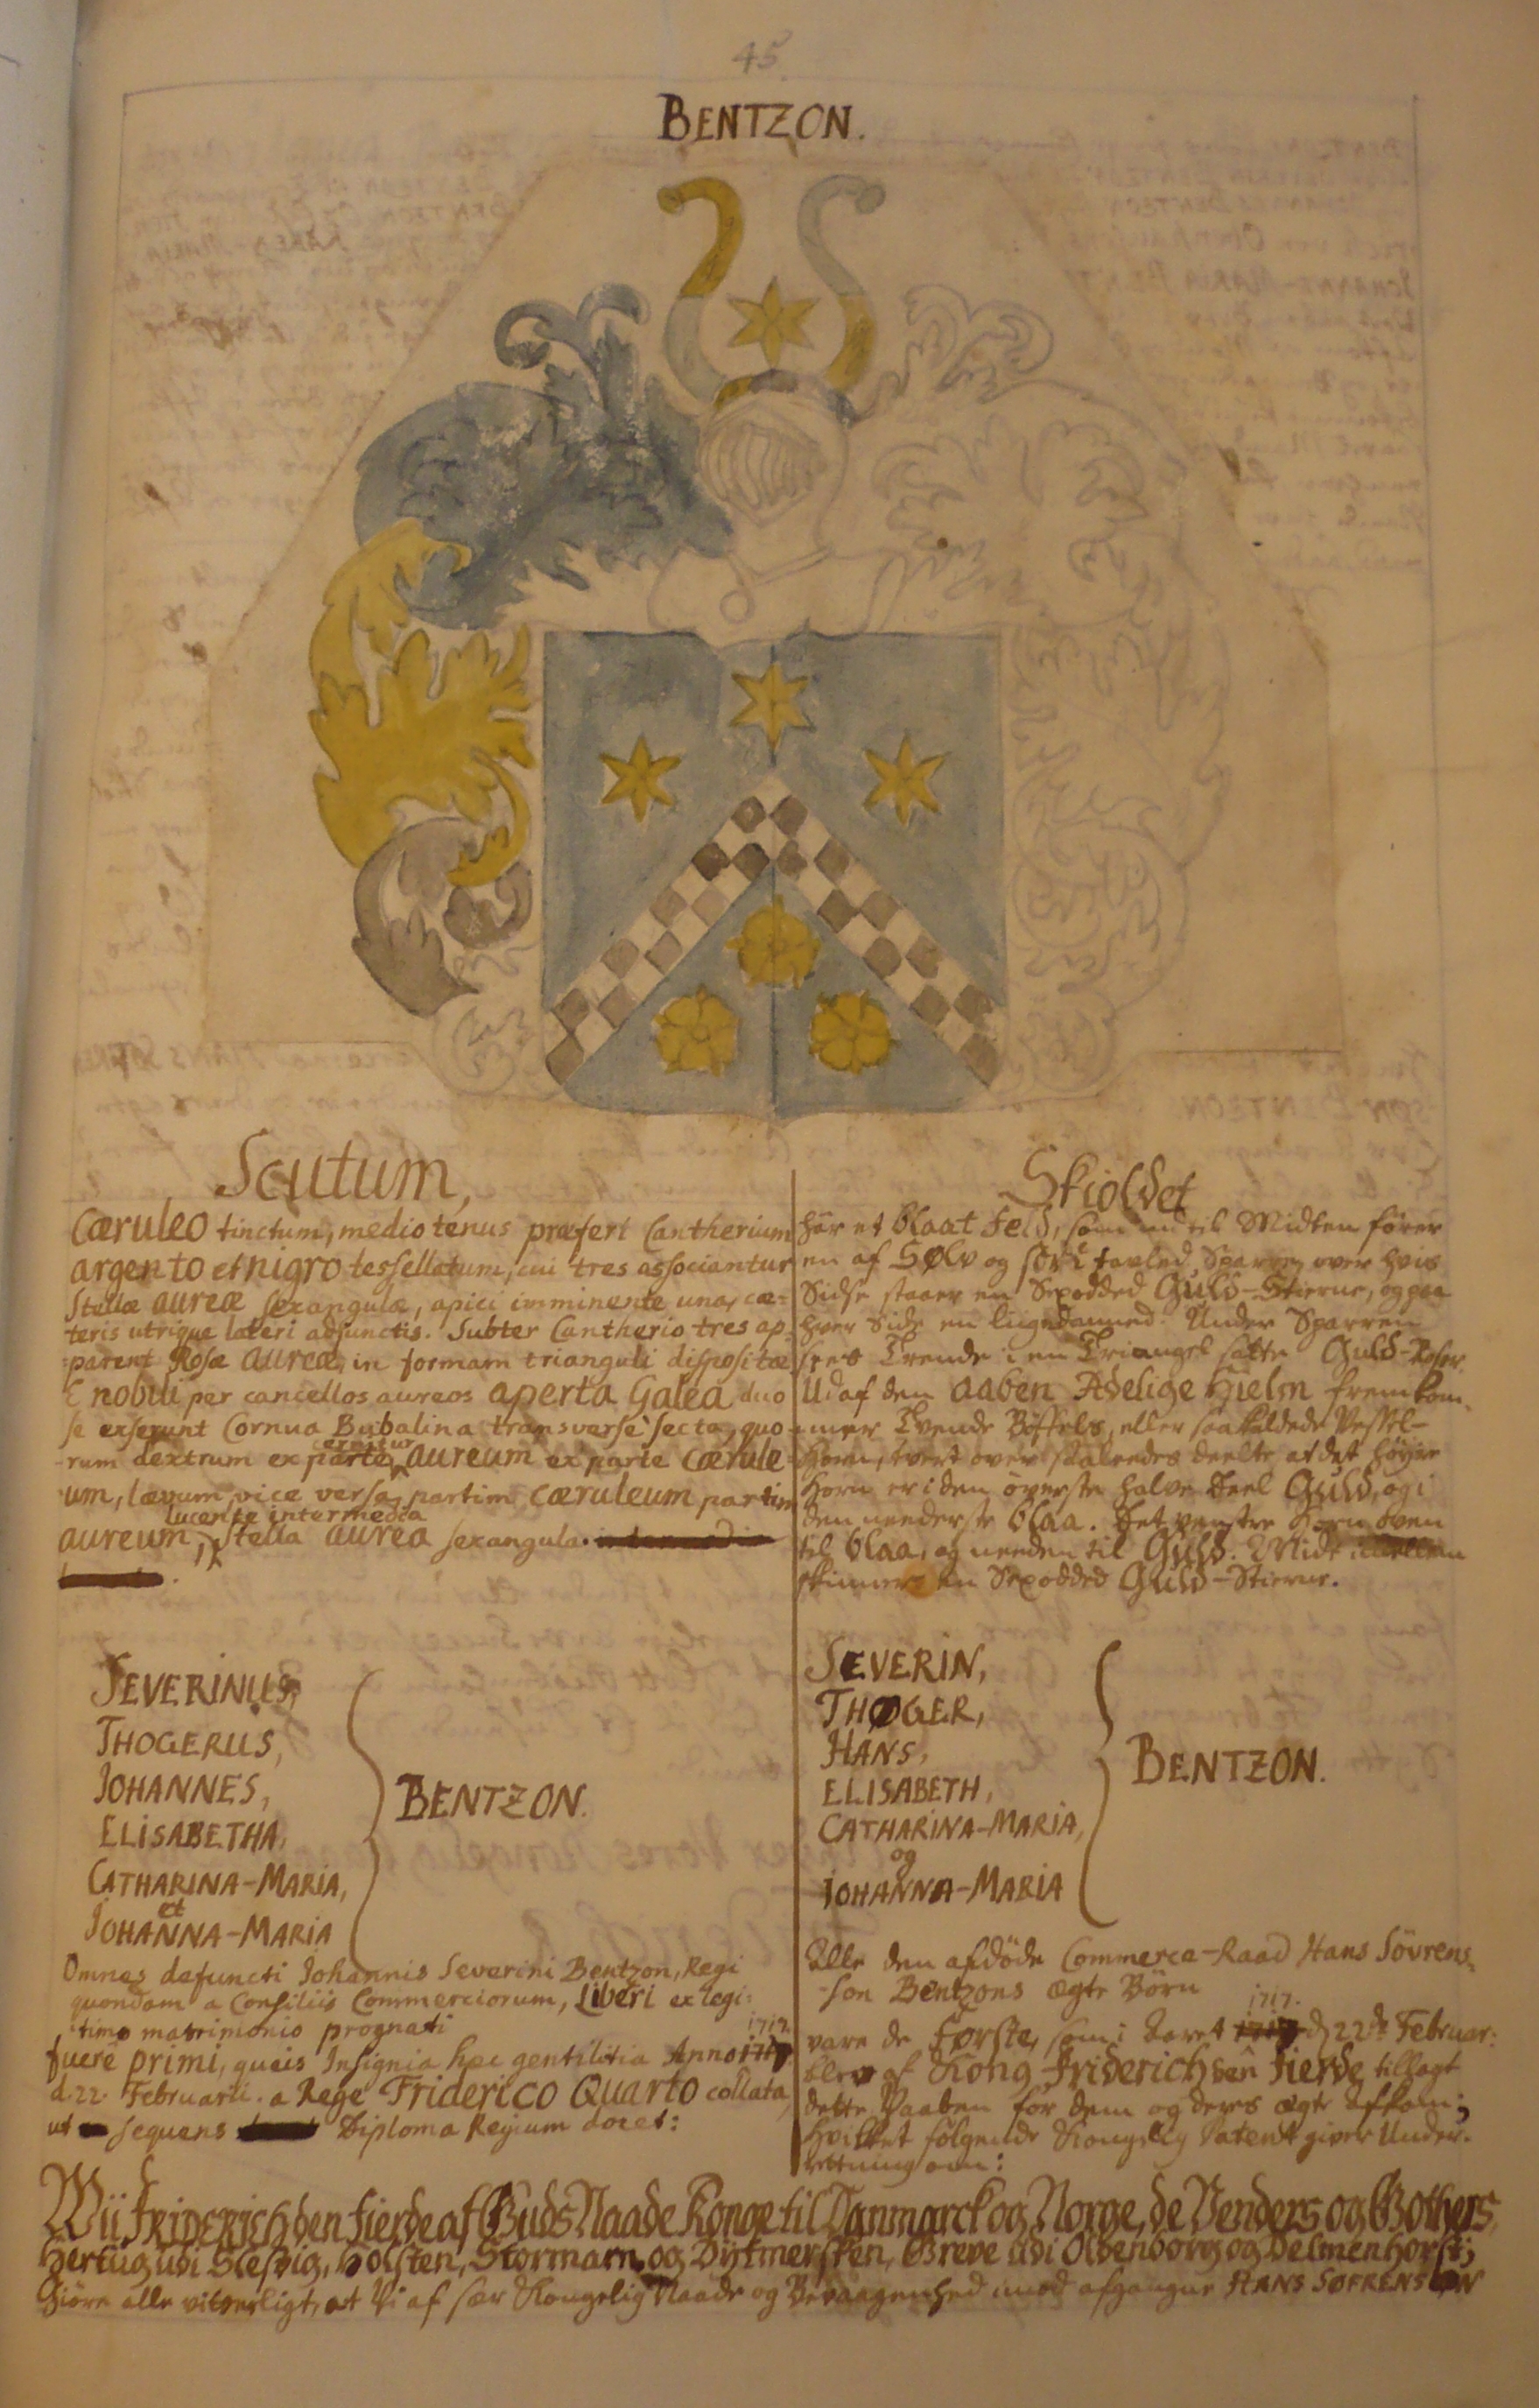 45
BENTZON.
Scutum,
Cæruleo tinctum, medio tenus præfert Cantherium
argento et nigro tessellatum, cui tres associantur
Stellæ aureæ sexangulæ, apici imminente una, cæ-
teris utrique lateri adjunctis. Subter Cantherio tres ap-
parent Rosæ aureæ, in formam trianguli dispositæ
E nobili per cancellos aureos aperta Galea duo
se exserunt Cornua Bubalina transversè secta, quo-
rum dextrum ex parte cernitur aureum ex parte cærule-
um, lævum vice versa, partim cæruleum partim
aureum, lucente intermedia stella aurea sexangula.
SEVERINUS,
THOGERUS,
JOHANNES,
ELISABETHA,
CATHARINA-MARIA,
et
JOHANNA-MARIA
BENTZON.
Omnes defuncti Johannis Severini Bentzon, Regi
quondam a Consiliis Commerciorum, Liberi ex legi-
timo matrimonio prognati
fuere primi, queis Insignia hæc gentilitia Anno 1717
d. 22. Februarii. a Rege Friderico Quarto collata,
ut sequens Diploma Regium docet:
Skioldet
har et blaat Feld, som ind til Midten fører
en af Sølv og sort tavled Sparre, over hvis
Sidse staaer en Sexodded Guld-Stierne, og paa
hver Side en liigedanned. Under Sparren
sees Trende i en Triangel satte Guld-Roser.
Udaf den aaben Adelige Hielm fremkom-
mer Tvende Bøffels, eller saakaldede Vessel-
Horn, tvert over saaledes deelte at det høyre
Horn er i den øverste halve Deel Guld, og i
den neederste blaa. Det venstre Horn oven
til blaa, og neden til Guld. Midt imellem
skinner en Sexodded Guld-Stierne.
SEVERIN,
THØGER,
HANS,
ELISABETH,
CATHARINA-MARIA,
og
JOHANNA-MARIA
BENTZON.
Alle den afdøde Commerce-Raad Hans Sövrens-
søn Bentzons ægte Børn
vare de Første, som i Aaret 1717. d. 22de Februar:
blev af Kong Friderich den Fierde tillagt
dette Vaaben for dem og deres ægte Afkom;
Hvilket følgende Kongelig Patent giver Under-
retning om:
Wii FRIDERICH den Fierde af Guds Naade Konge til Danmarck og Norge, de Venders og Gothers,
Hertug udi Slesvig, Holsten, Stormarn og Dytmersken, Greve udi Oldenborg og Delmenhorst;
Giøre alle vitterligt, at Vi af sær Kongelig Naade og Bevaagenhed imod afgangne HANS SØFRENSØN